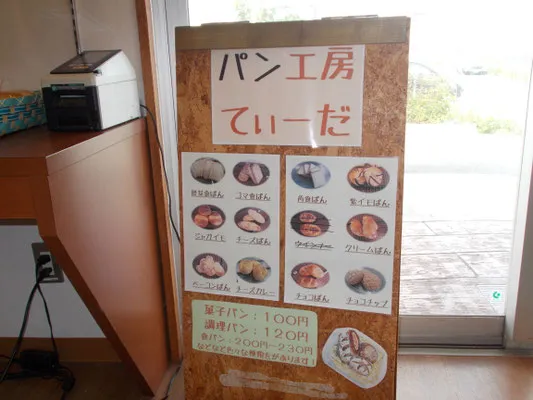 パン工房
てぃーだ
ゴマ食ぱん
角食ぱん
紫イモぱん
ジャガイモ
チーズぱん
ウインナー
クリームぱん
ベーコンぱん
チーズカレー
チョコぱん
チョコチップ
菓子パン：100円
調理パン：120円
食パン：200円～230円
などなど色々な種類があります！